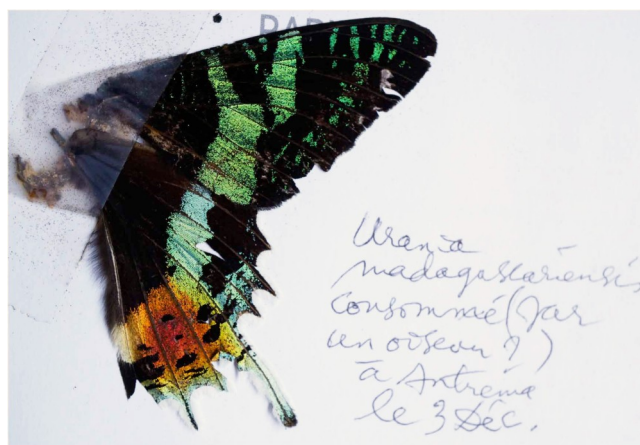 PARI
Urania
madagascariensis
consommé (par
un oiseau ?)
à Antréma
le 3 Déc.